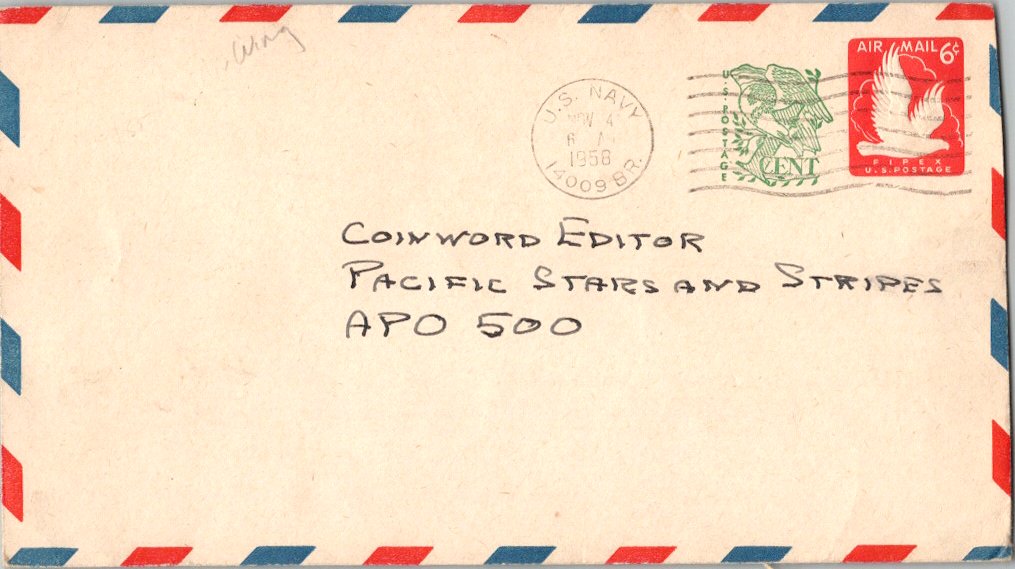 Wing
U.S. NAVY
NOV 4
6 A
1958
14009 BR.
U.S. POSTAGE
CENT
AIR MAIL 6¢
FIPEX
U.S. POSTAGE
COINWORD EDITOR
PACIFIC STARS AND STRIPES
APO 500